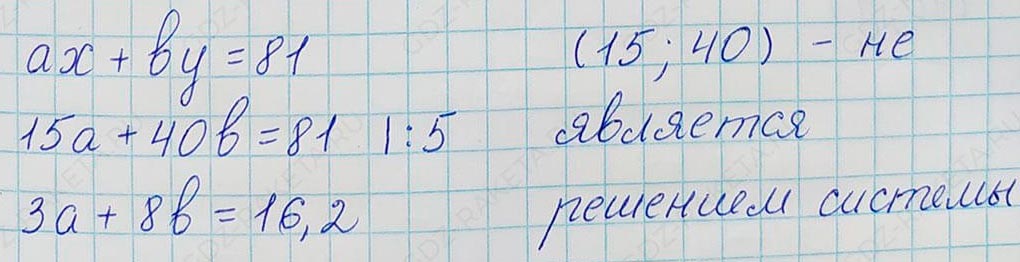 ax + by = 81 (15; 40) - не
15a + 40b = 81 | : 5 является
3a + 8b = 16,2 решением системы